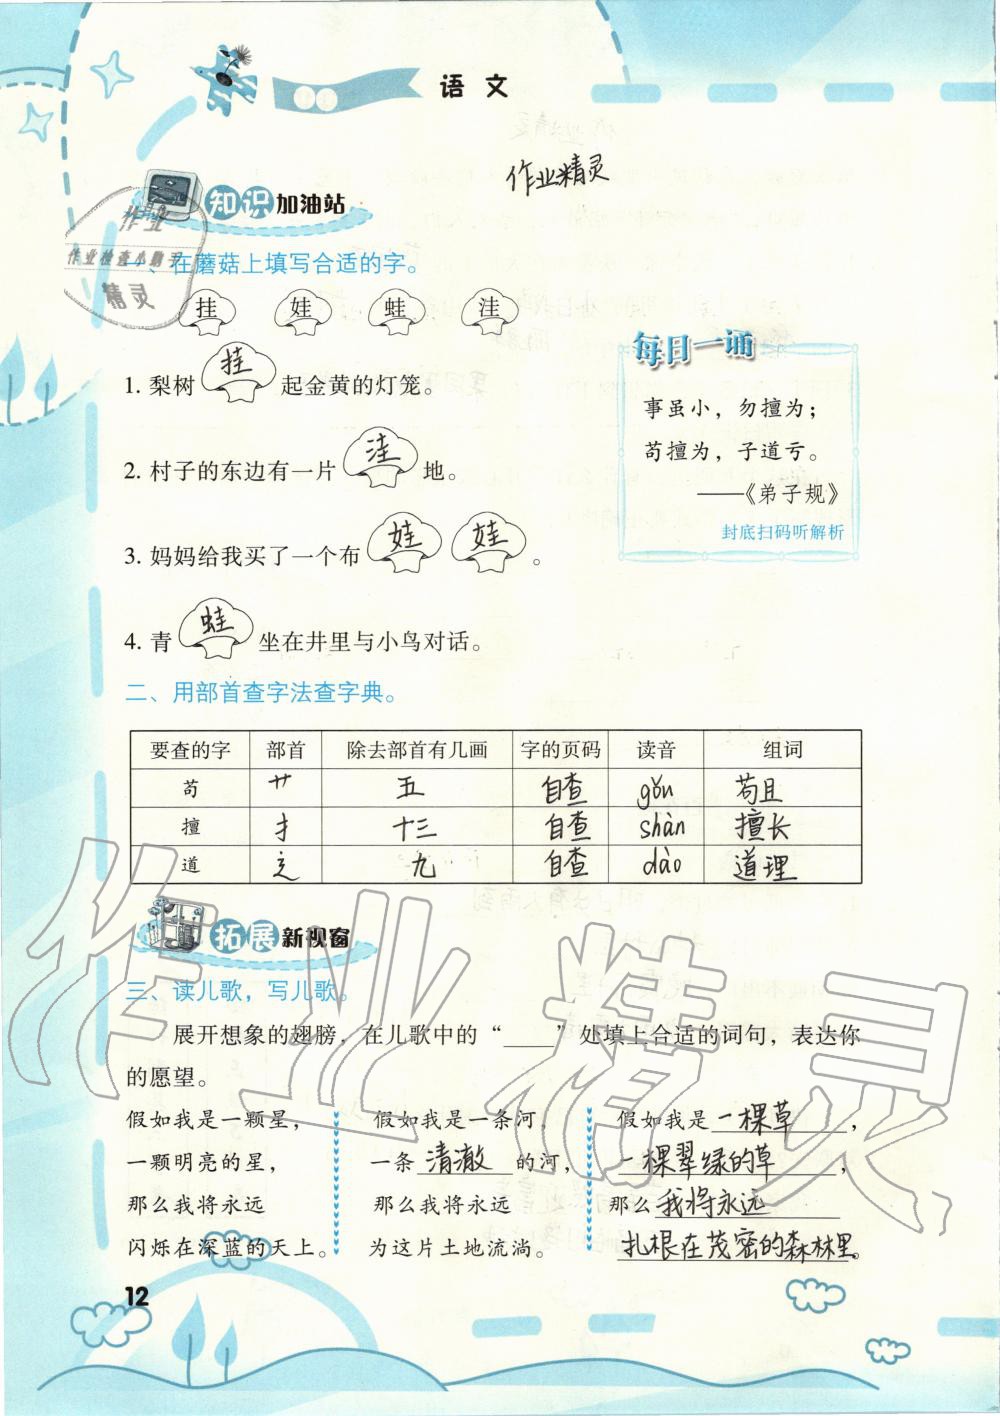 语 文
作业精灵
知识加油站
作业
作业检查小助手
精灵
一、在蘑菇上填写合适的字。
挂 娃 蛙 洼
1. 梨树 挂 起金黄的灯笼。
2. 村子的东边有一片 洼 地。
3. 妈妈给我买了一个布 娃 娃 。
4. 青 蛙 坐在井里与小鸟对话。
每日一诵
事虽小，勿擅为；
苟擅为，子道亏。
——《弟子规》
封底扫码听解析
二、用部首查字法查字典。
要查的字 部首 除去部首有几画 字的页码 读音 组词
苟 艹 五 自查 gǒu 苟且
擅 扌 十三 自查 shàn 擅长
道 辶 九 自查 dào 道理
拓展新视窗
三、读儿歌，写儿歌。
展开想象的翅膀，在儿歌中的“____”处填上合适的词句，表达你
的愿望。
假如我是一颗星，
一颗明亮的星，
那么我将永远
闪烁在深蓝的天上。
假如我是一条河，
一条 清澈 的河，
那么我将永远
为这片土地流淌。
假如我是 一棵草 ，
一棵翠绿的草 ，
那么 我将永远
扎根在茂密的森林里。
12
作业精灵